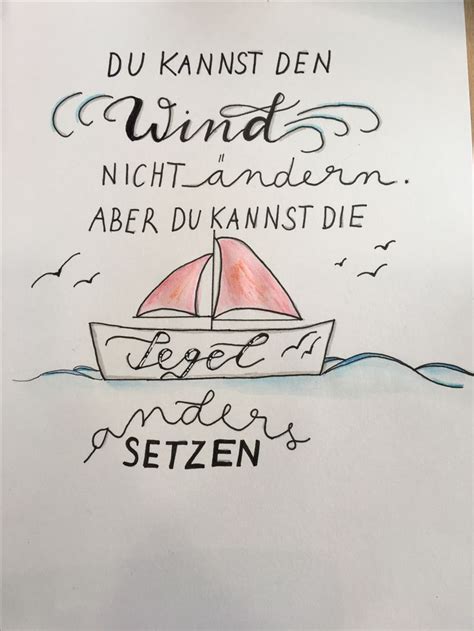 DU KANNST DEN
Wind
NICHT ändern.
ABER DU KANNST DIE
Segel
anders
SETZEN